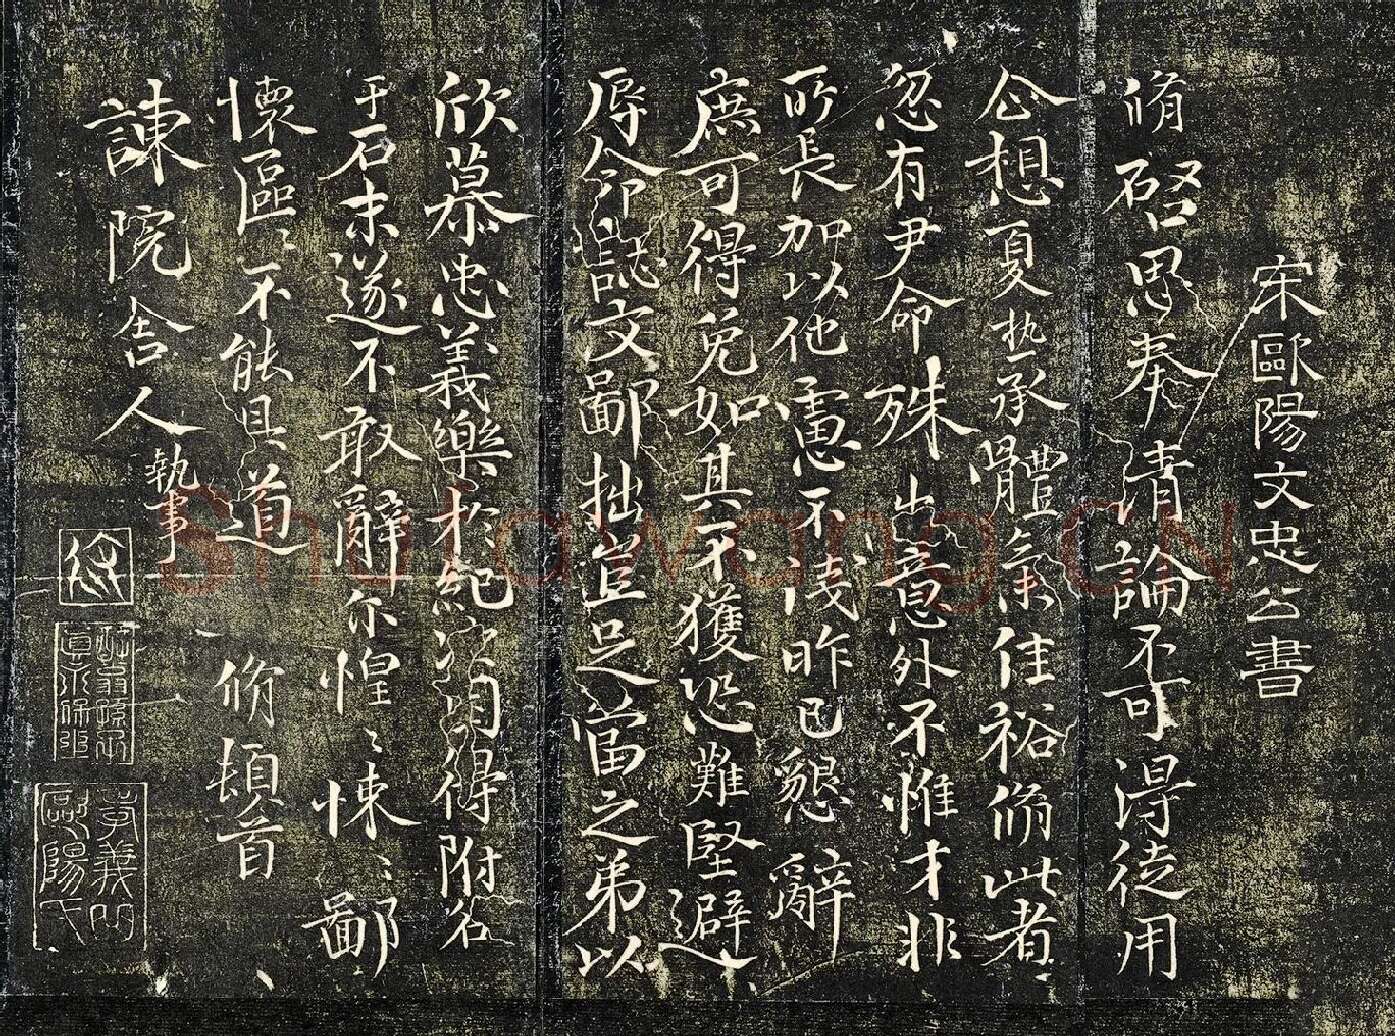 宋歐陽文忠公書
脩啓思奉清論不可得徒用
企想夏热承體氣佳裕脩此者
忽有尹命殊出意外不惟才非
所長加以他慮不淺昨已懇辭
庶可得免如其不獲恐難堅避
辱命誌文鄙拙豈足當之弟以
欣慕忠義樂於紀次因得附名
于石末遂不敢辭尔惶〻悚〻鄙
懷區〻不能具道 脩頓首
諫院舍人
執事
孝義門
歐陽氏
Shufawang.CN